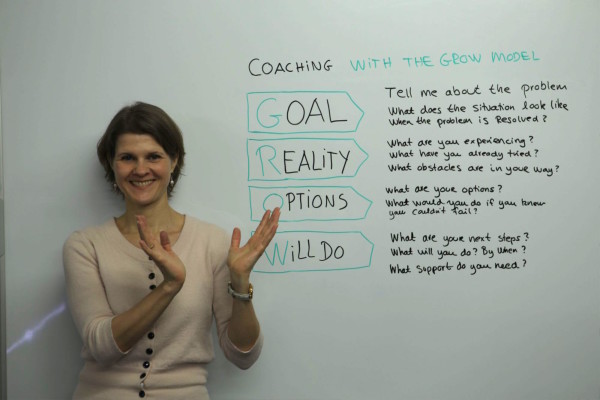 COACHING WITH THE GROW MODEL
GOAL
Tell me about the problem
What does the situation look like
When the problem is Resolved?
REALITY
What are you experiencing?
What have you already tried?
What obstacles are in your way?
OPTIONS
What are your options?
What would you do if you knew
you couldn't fail?
WiLL DO
What are your next steps?
What will you do? By When?
What support do you need?